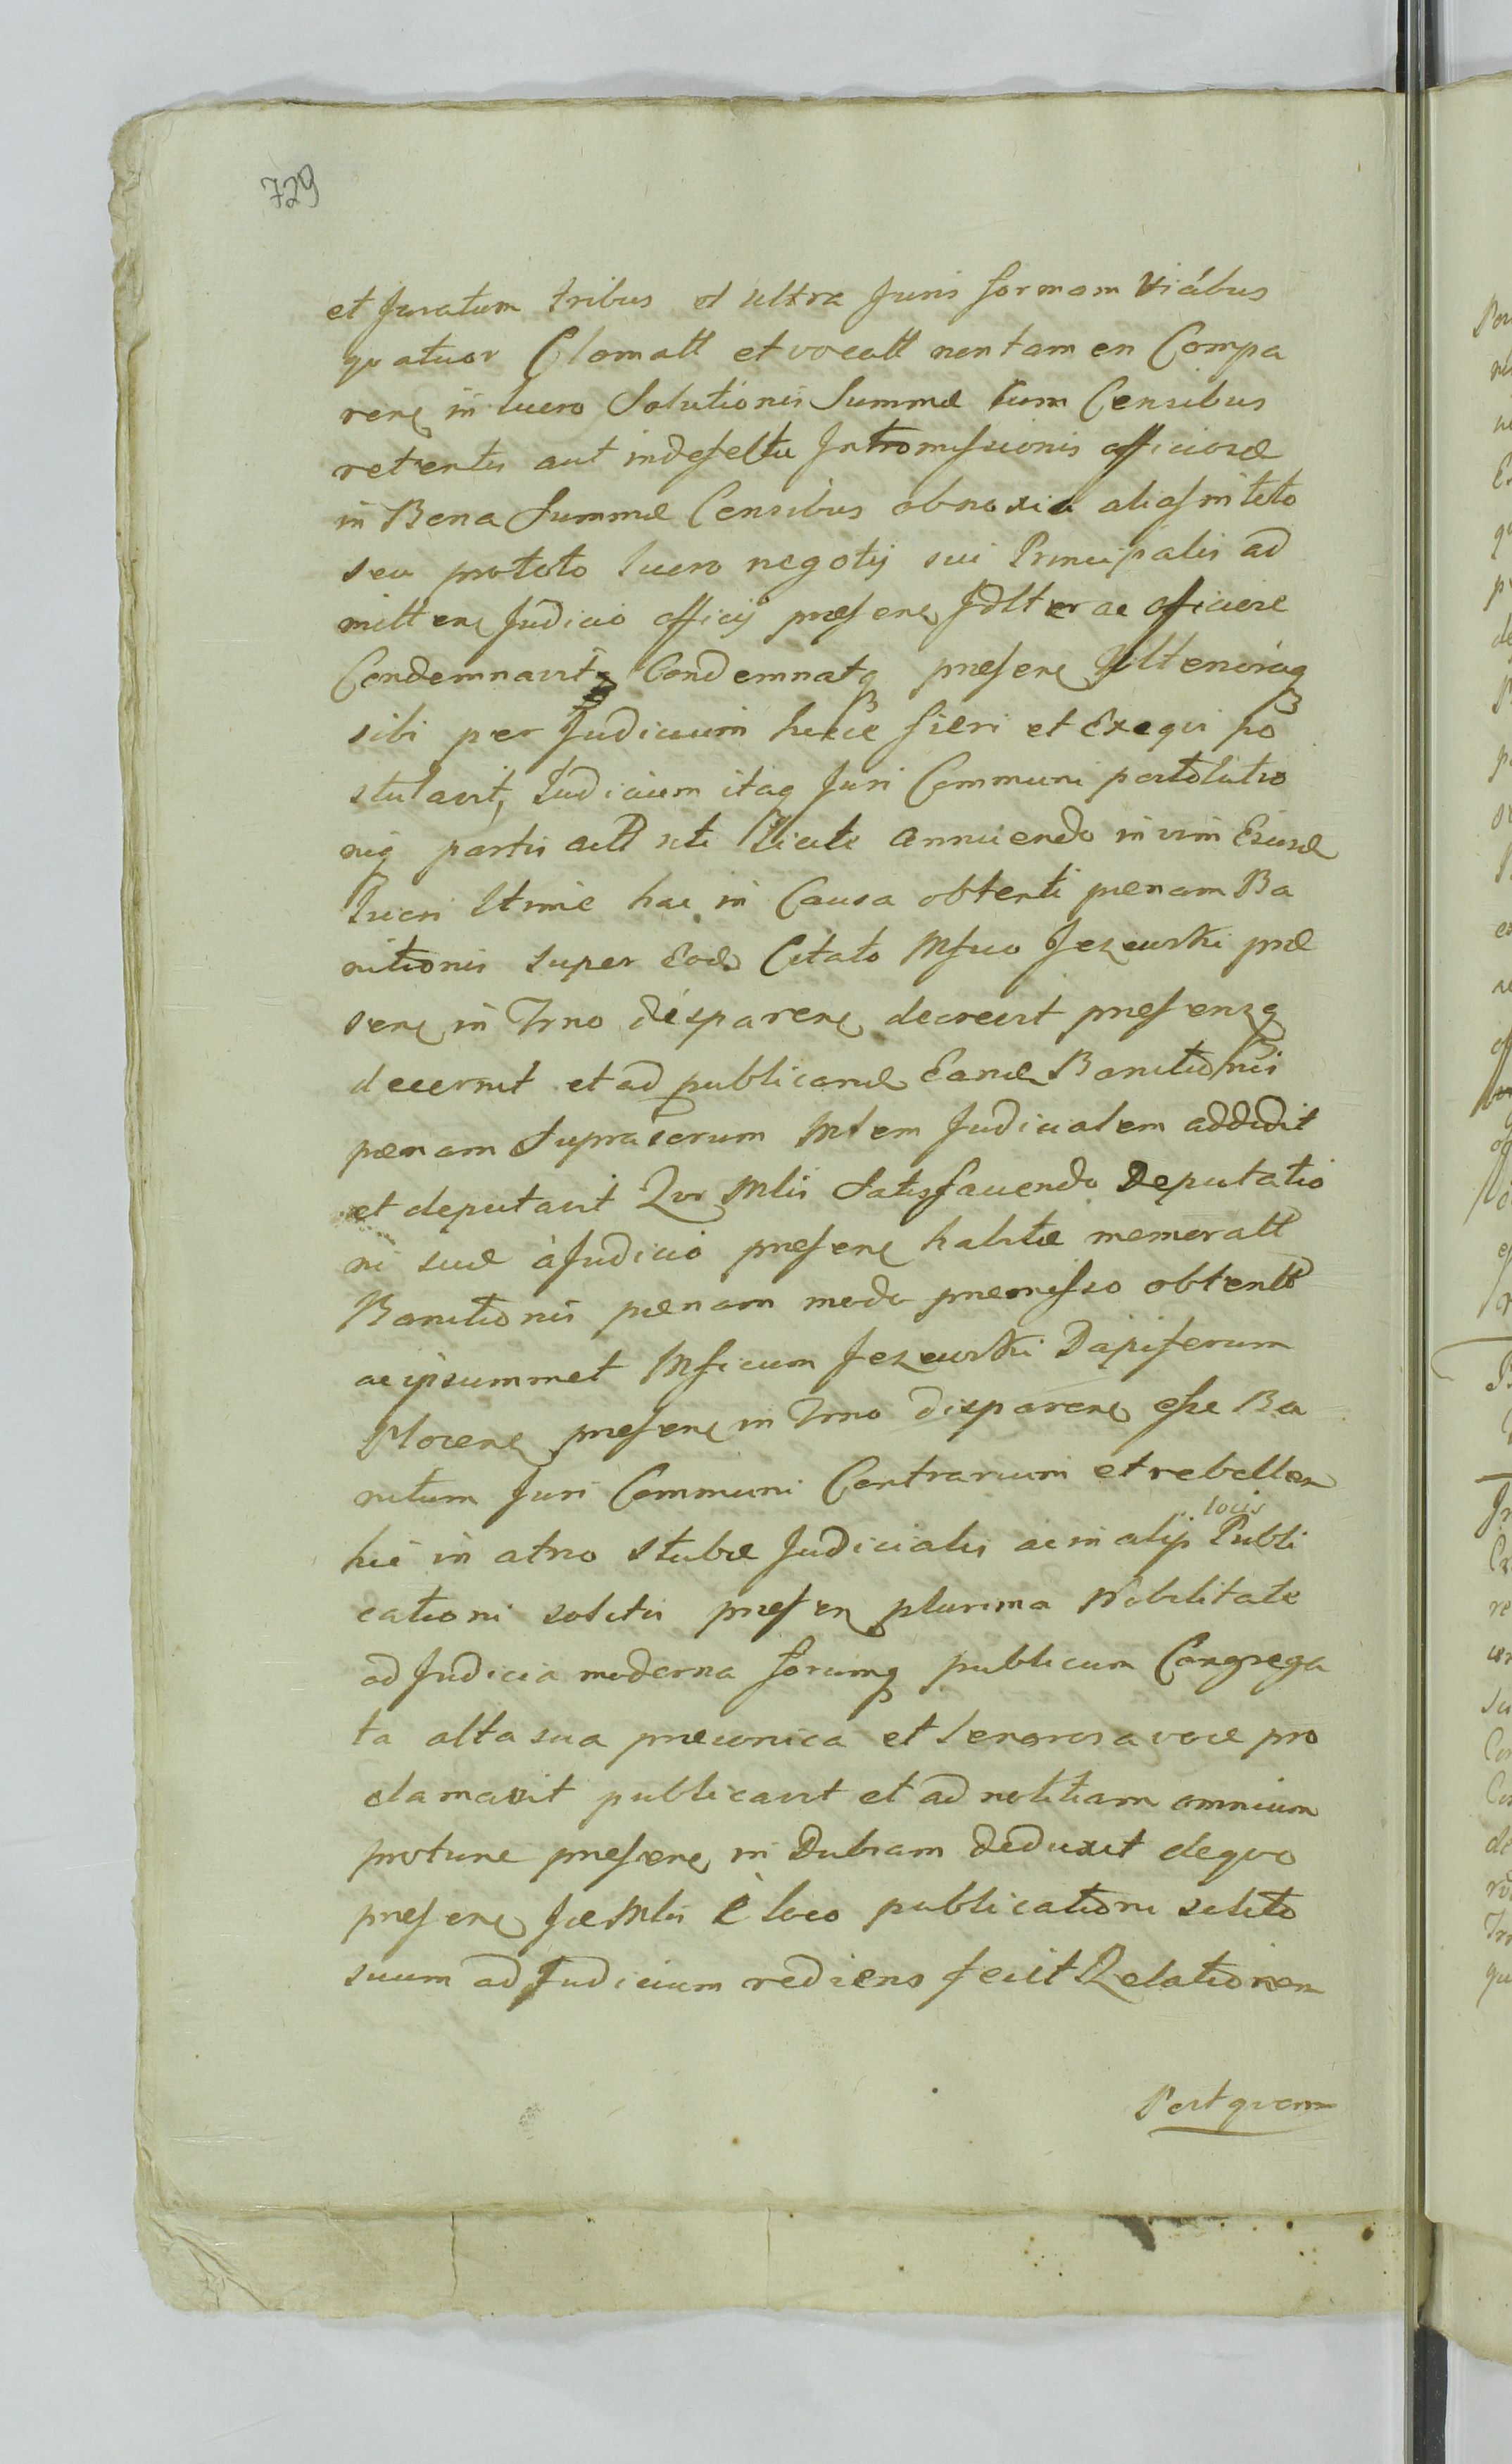 729
et Juratum tribus et ultra Juris formam Viábus
quatuor Clamatt et vocatt non tamen Compa
ren in lucro Solutionis Summæ cum Censibus
retentis aut indefectu Intromissionis officiosæ
in Bona Summæ Censibus obnoxia alias in toto
seu pro toto lucro negotij sui Principalis ad
mitten Judicio officij præsen
Condemnavit Condemnatq præsen Ulteriusq
sibi per Judicium hocce fieri et Exequi po
stulavit, Judicium itaq Juri Communi postulatio
niq partis act uti licite annuendo in vim Eiusd
lucri ltime hac in Causa obtenti pænam Ba
nitionis super Eod Citato Mfico Jezewski præ
sen in Trno disparen decrevit præsensq
decernit et ad publicand Eand Banitionis
pænam Suprascrum Mlem Judicialem addidit
et deputavit Qvi Mlis Satisfaciendo Deputatio
ni suæ à Judicio præsen habitæ memoratt
Banitionis pænam modo præmisso obtentt
ac ipsummet Mficum Jezewski Dapiferum
Plocen præsen in Trno disparen esse Ba
nitum Juri Communi Contrarium et rebellem
hic in atrio Stubæ Judicialis ac in alijs locis Publi
cationi solitis præsen plurima Nobilitate
ad Judicia moderna forumq publicum Congrega
ta alta sua præconica et Sonorosa voce pro
clamavit publicavit et ad notitiam omnium
protunc præsen in Dubiam deduxit de quo
præsen Jdē Mlis è loco publicationi solito
suum ad Judicium rediens fecit Relationem
Post quam